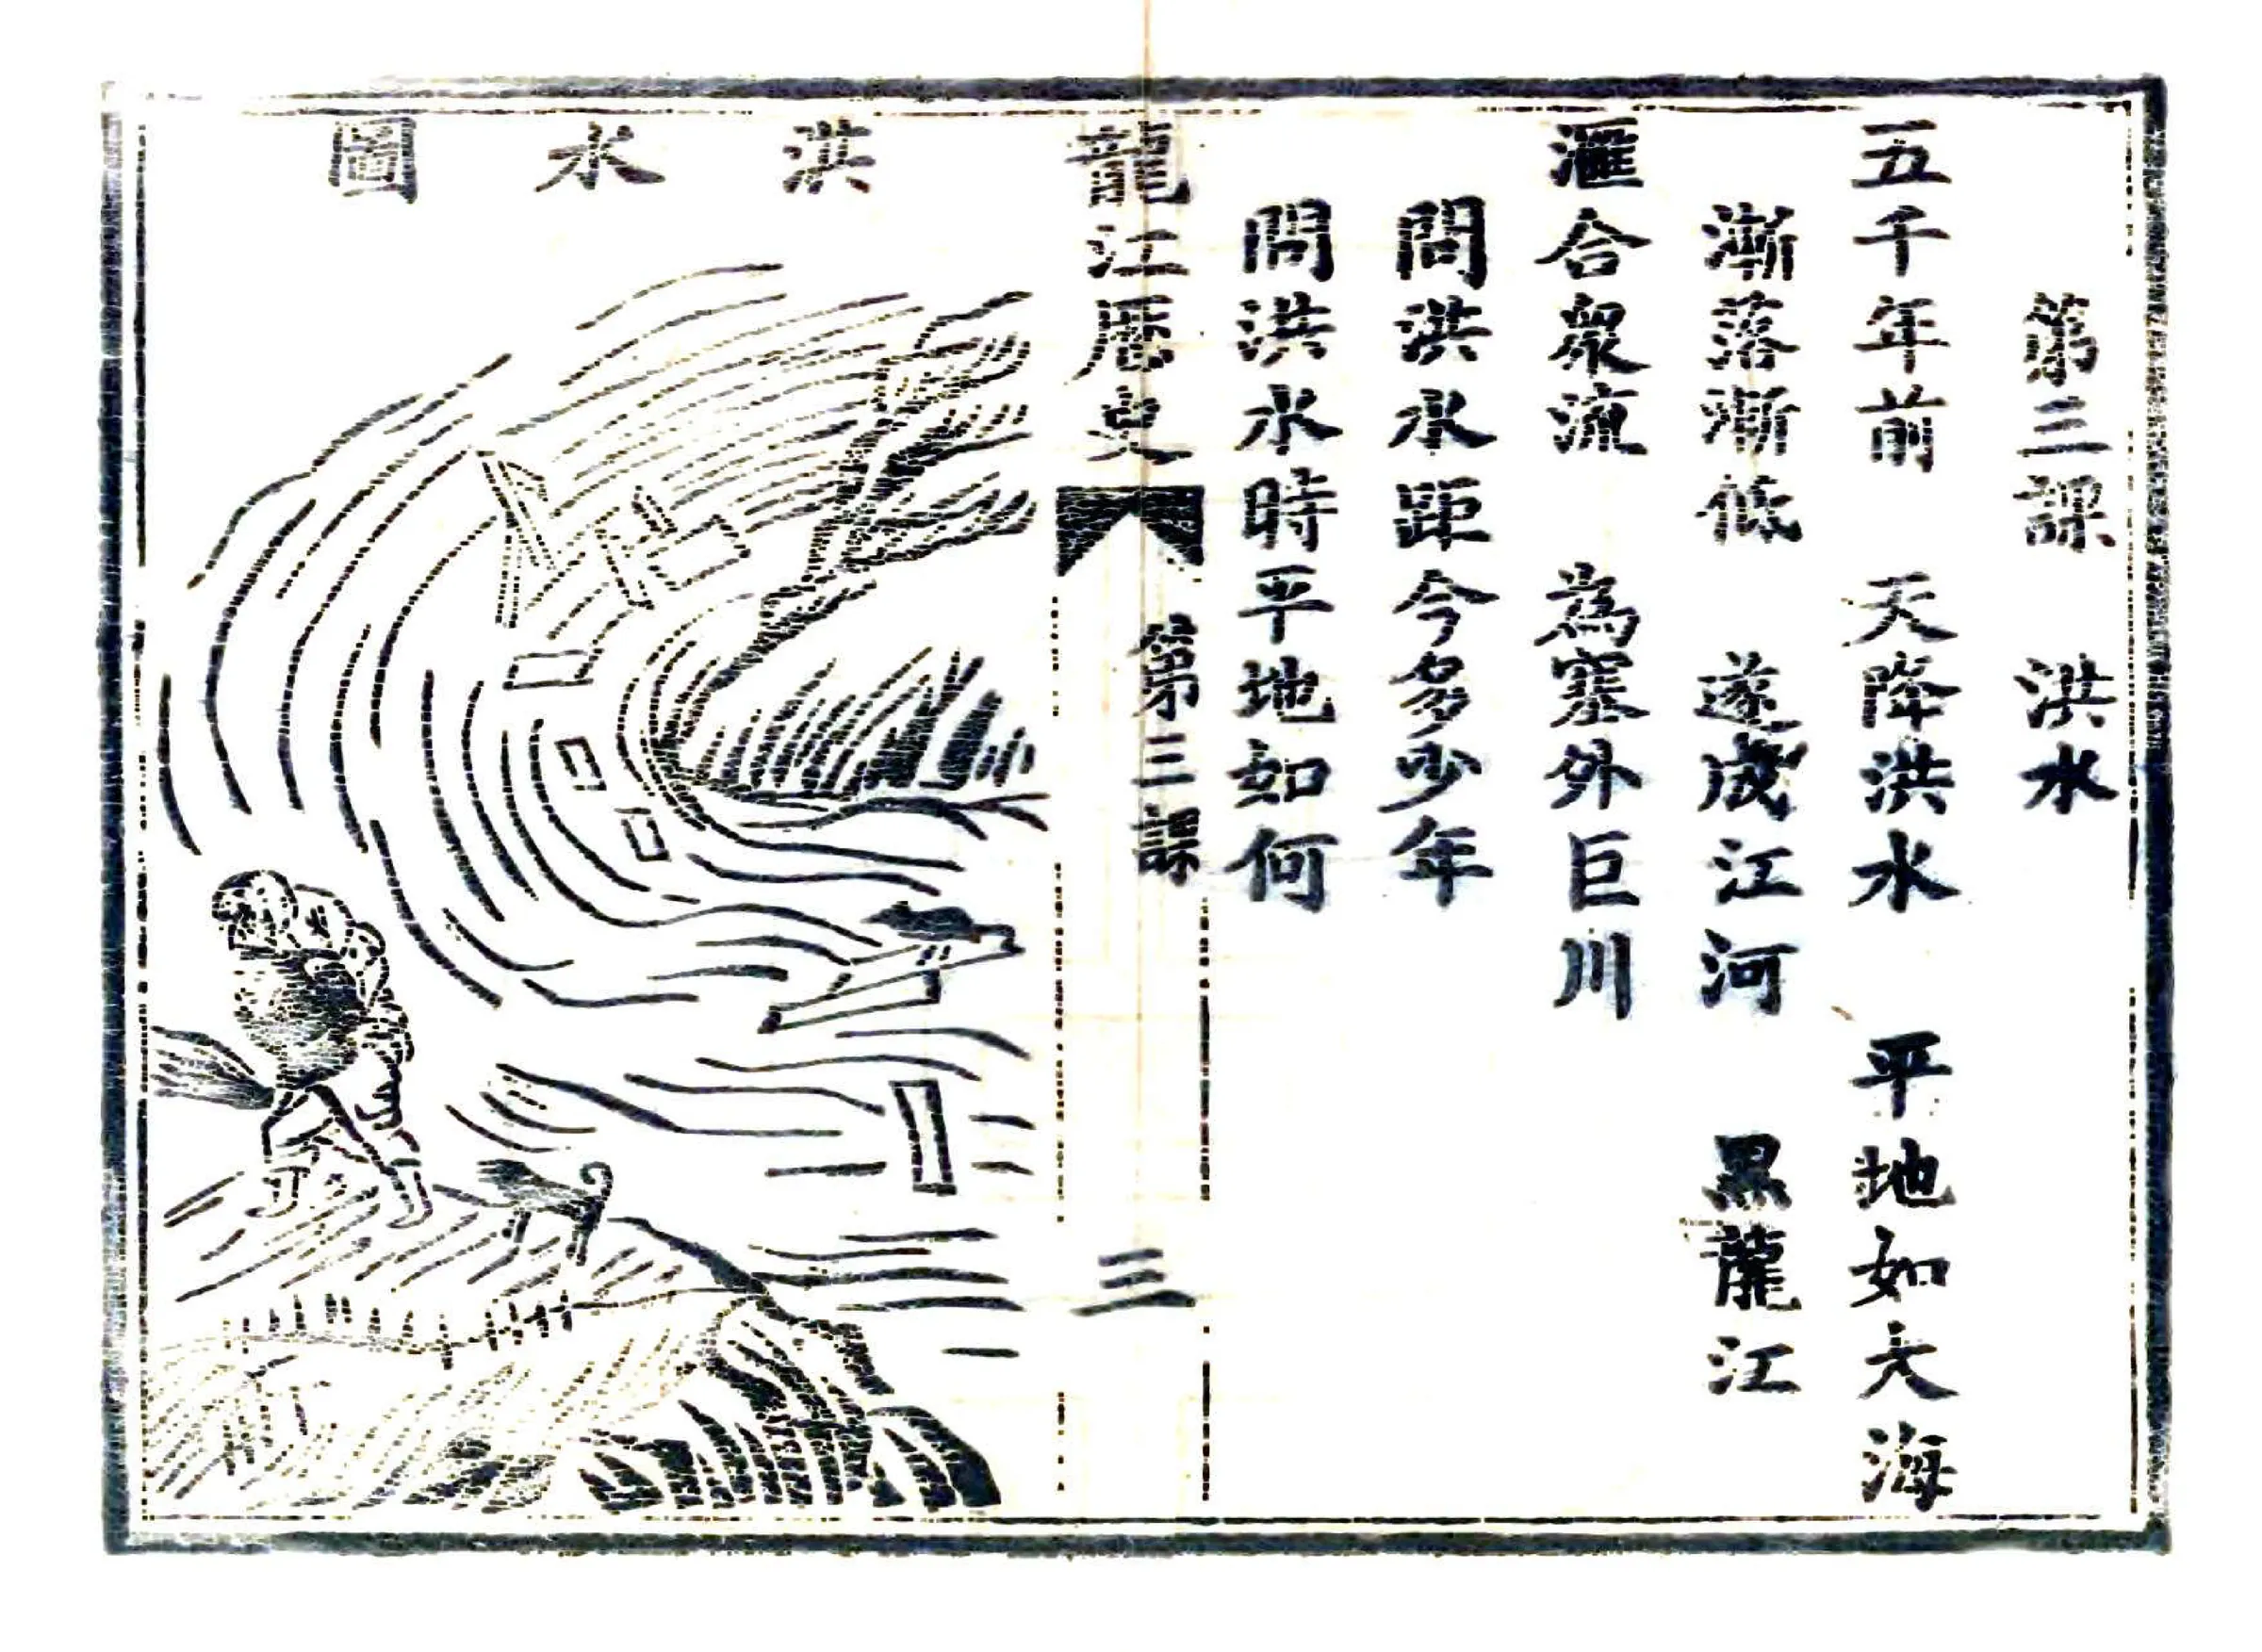 第三課　洪水
五千年前　天降洪水　平地如大海
漸落漸低　遂成江河　黑龍江
滙合衆流　為塞外巨川
問洪水距今多少年
問洪水時平地如何
龍江厯史　第三課　三
洪水圖